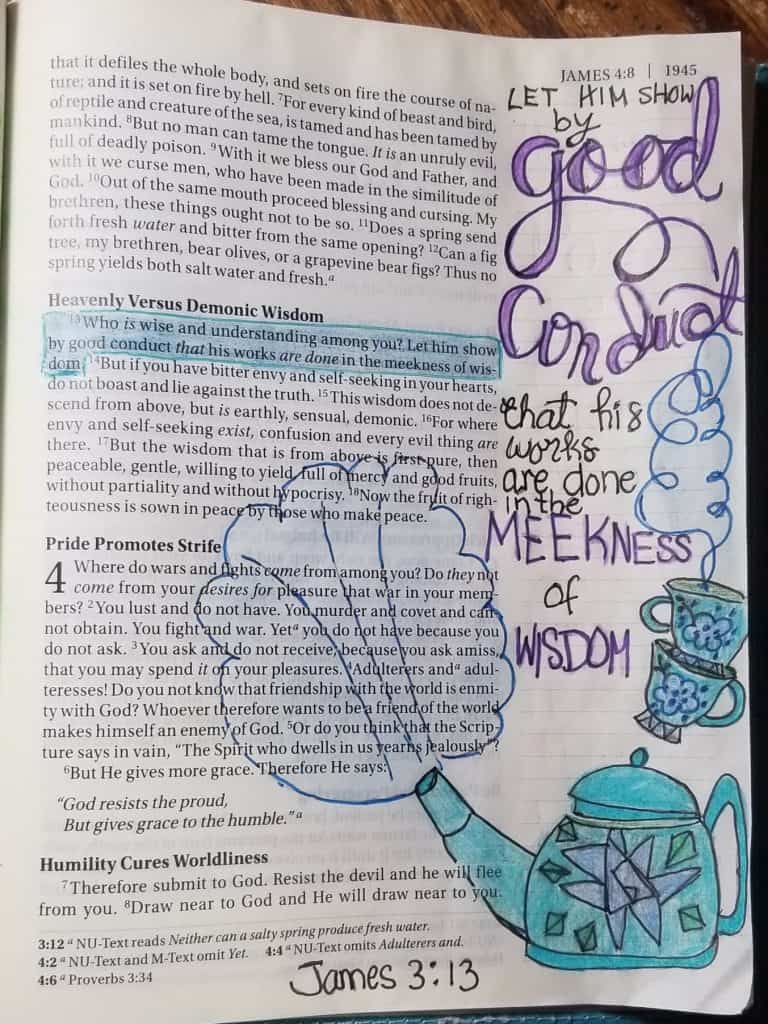 JAMES 4:8 | 1945
that it defiles the whole body, and sets on fire the course of na-
ture; and it is set on fire by hell. 7For every kind of beast and bird,
of reptile and creature of the sea, is tamed and has been tamed by
mankind. 8But no man can tame the tongue. It is an unruly evil,
full of deadly poison. 9With it we bless our God and Father, and
with it we curse men, who have been made in the similitude of
God. 10Out of the same mouth proceed blessing and cursing. My
brethren, these things ought not to be so. 11Does a spring send
forth fresh water and bitter from the same opening? 12Can a fig
tree, my brethren, bear olives, or a grapevine bear figs? Thus no
spring yields both salt water and fresh.a
Heavenly Versus Demonic Wisdom
13Who is wise and understanding among you? Let him show
by good conduct that his works are done in the meekness of wis-
dom. 14But if you have bitter envy and self-seeking in your hearts,
do not boast and lie against the truth. 15This wisdom does not de-
scend from above, but is earthly, sensual, demonic. 16For where
envy and self-seeking exist, confusion and every evil thing are
there. 17But the wisdom that is from above is first pure, then
peaceable, gentle, willing to yield, full of mercy and good fruits,
without partiality and without hypocrisy. 18Now the fruit of righ-
teousness is sown in peace by those who make peace.
Pride Promotes Strife
4 Where do wars and fights come from among you? Do they not
come from your desires for pleasure that war in your mem-
bers? 2You lust and do not have. You murder and covet and can-
not obtain. You fight and war. Yeta you do not have because you
do not ask. 3You ask and do not receive, because you ask amiss,
that you may spend it on your pleasures. 4Adulterers anda adul-
teresses! Do you not know that friendship with the world is enmi-
ty with God? Whoever therefore wants to be a friend of the world
makes himself an enemy of God. 5Or do you think that the Scrip-
ture says in vain, “The Spirit who dwells in us yearns jealously”?
6But He gives more grace. Therefore He says:
“God resists the proud,
But gives grace to the humble.”a
Humility Cures Worldliness
7Therefore submit to God. Resist the devil and he will flee
from you. 8Draw near to God and He will draw near to you.
3:12 a NU-Text reads Neither can a salty spring produce fresh water.
4:2 a NU-Text and M-Text omit Yet. 4:4 a NU-Text omits Adulterers and.
4:6 a Proverbs 3:34
LET HIM SHOW
by
good
Conduct
that his
works
are done
in the
MEEKNESS
of
WISDOM
James 3:13